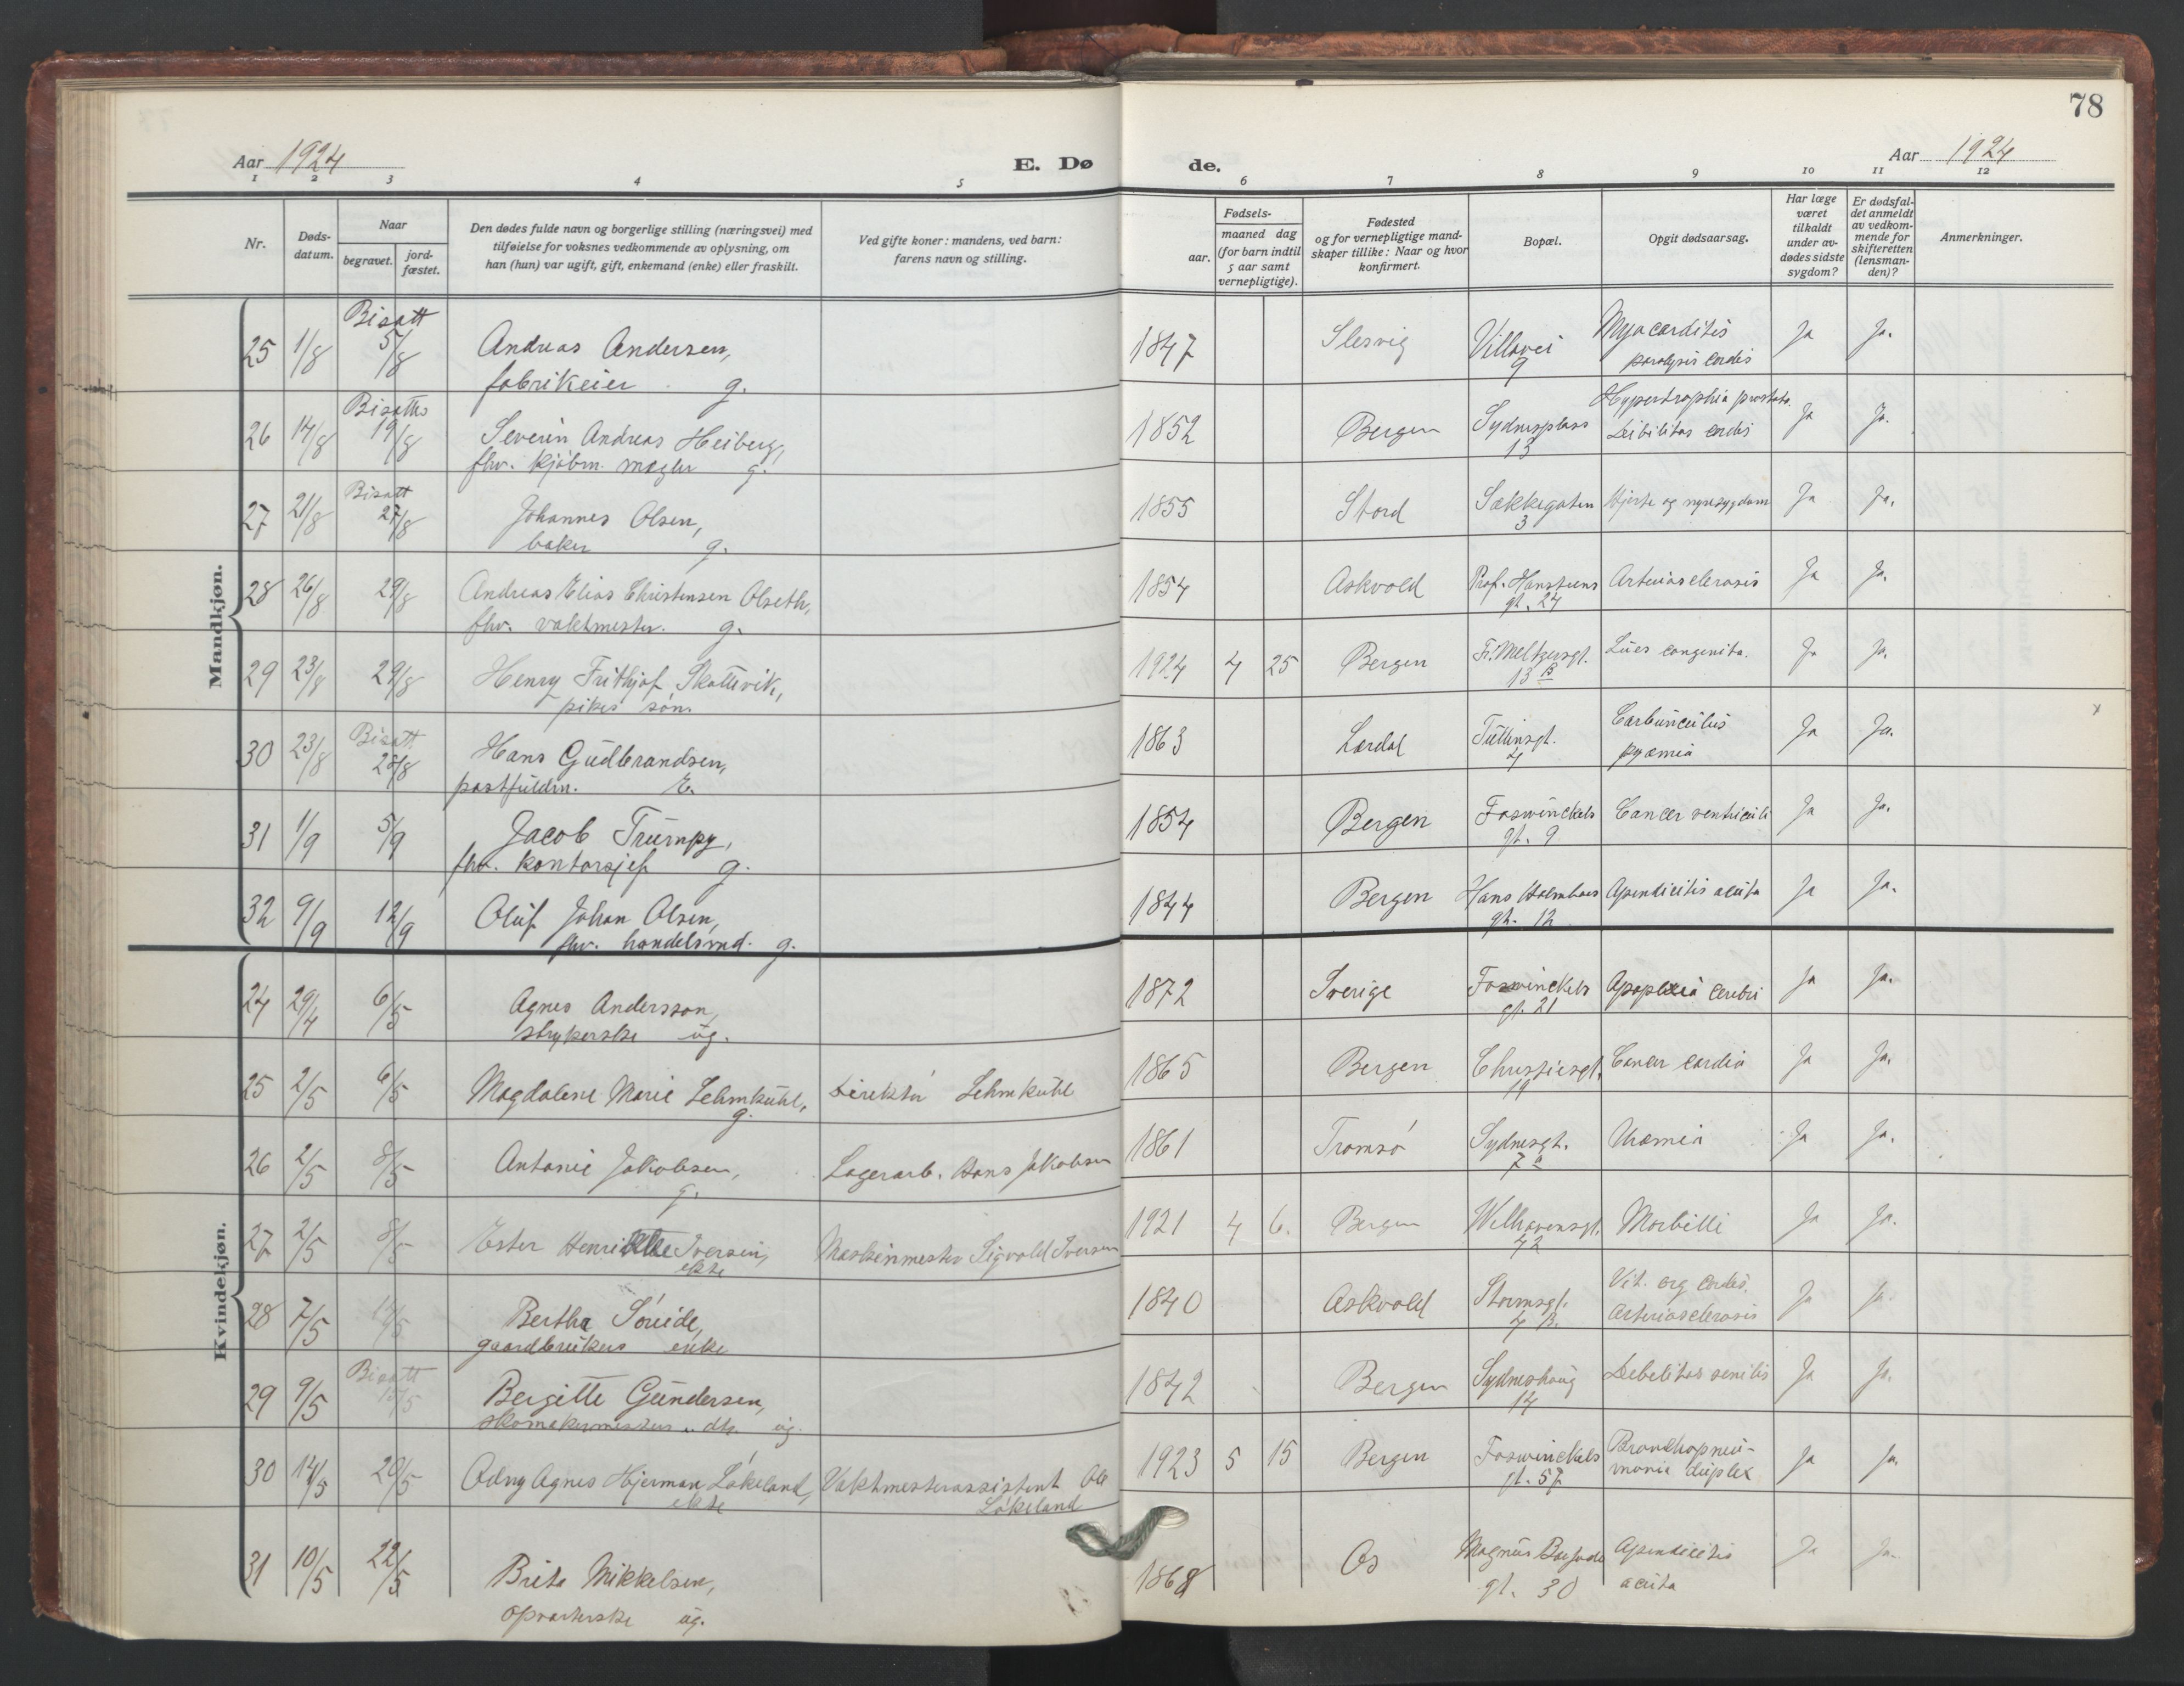 78
Aar 1924
E. Dø de.
Aar 1924
1 2 3 4 5 6 7 8 9 10 11 12
Nr.
Døds-
datum.
Naar
begravet.
jord-
fæstet.
Den dødes fulde navn og borgerlige stilling (næringsvei) med
tilføielse for voksnes vedkommende av oplysning, om
han (hun) var ugift, gift, enkemand (enke) eller fraskilt.
Ved gifte koner: mandens, ved barn:
farens navn og stilling.
Fødsels-
aar.
maaned dag
(for barn indtil
5 aar samt
vernepligtige).
Fødested
og for vernepligtige mand-
skaper tillike: Naar og hvor
konfirmert.
Bopæl.
Opgit dødsaarsag.
Har læge
været
tilkaldt
under av-
dødes sidste
sygdom?
Er dødsfal-
det anmeldt
av vedkom-
mende for
skifteretten
(lensman-
den)?
Anmerkninger.
Mandkjøn.
Bisatt
25 1/8 5/8 Andreas Andersen, 1847 Slesvig Villavei Myocarditis Ja Ja.
fabrikeier g. 9 paralysis cordis
Bisattes Hypertrophia prostata.
26 14/8 19/8 Severin Andreas Heiberg, 1852 Bergen Sydnesplass Debilitas cordis Ja Ja.
fhv. kjøbm. megler g. 13
Bisatt
27 21/8 27/8 Johannes Olsen, 1855 Stord Sækkegaten Hjerte og nyresygdom Ja Ja.
baker g. 3
28 26/8 29/8 Andreas Elias Christensen Olseth, 1854 Askvold Prof. Hansteens Arteriosclerosis Ja Ja.
fhv. vaktmester. g. gt. 24
29 23/8 29/8 Henry Frithjof Skottevik, 1924 4 25 Bergen Fr. Meltzersgt. Lues congenita. Ja Ja.
pikes søn. 13 B
Bisatt
30 23/8 28/8 Hans Gudbrandsen, 1863 Lærdal Tullinsgt. Carbunculus Ja Ja.
postfuldm. E. 4 pyæmia
31 1/9 5/9 Jacob Trumpy, 1854 Bergen Foswinckels Cancer ventriculi Ja Ja.
fhv. kontorsjef g. gt. 9
32 9/9 12/9 Oluf Johan Olsen, 1844 Bergen Hans Holmboes Apendicitis acuta Ja Ja.
fhv. handelsmd. g. gt. 12
Kvindekjøn.
24 29/4 6/5 Agnes Andersson, 1872 Sverige Foswinckels Apoplexia cerebri Ja Ja.
strykerske ug. gt. 21
25 2/5 6/5 Magdalene Marie Lehmkuhl, Direktør Lehmkuhl 1865 Bergen Christiesgt. Cancer cardia Ja Ja.
g. 19
26 2/5 8/5 Antonie Jakobsen, Lagerarb. Hans Jakobsen 1861 Tromsø Sydnesgt. Uræmia Ja Ja.
g. 7 a
27 2/5 8/5 Ester Henriette Iversen, Maskinmester Sigvald Iversen 1921 4 6. Bergen Welhavensgt. Morbilli Ja Ja.
ekte 42
28 7/5 14/5 Bertha Søreide, 1840 Askvold Stormsgt. Vit. org cordis. Ja Ja.
gaardbrukers enke 4 B. Arteriosclerosis
Bisatt
29 9/5 15/5 Bergitte Gundersen, 1842 Bergen Sydneshaug Debelitas senilis Ja Ja.
skomakermesters dtr. ug. 14
30 14/5 20/5 Odny Agnes Hjerman Løkeland, Vaktmesterassistent Ole 1923 5 15 Bergen Foswinckels Bronchopneu- Ja Ja.
ekte Løkeland gt. 57 monia duplex
31 10/5 22/5 Brita Mikkelsen, 1868 Os Magnus Barfods Apendicitis Ja Ja.
opvarterske ug. gt. 30 acuta